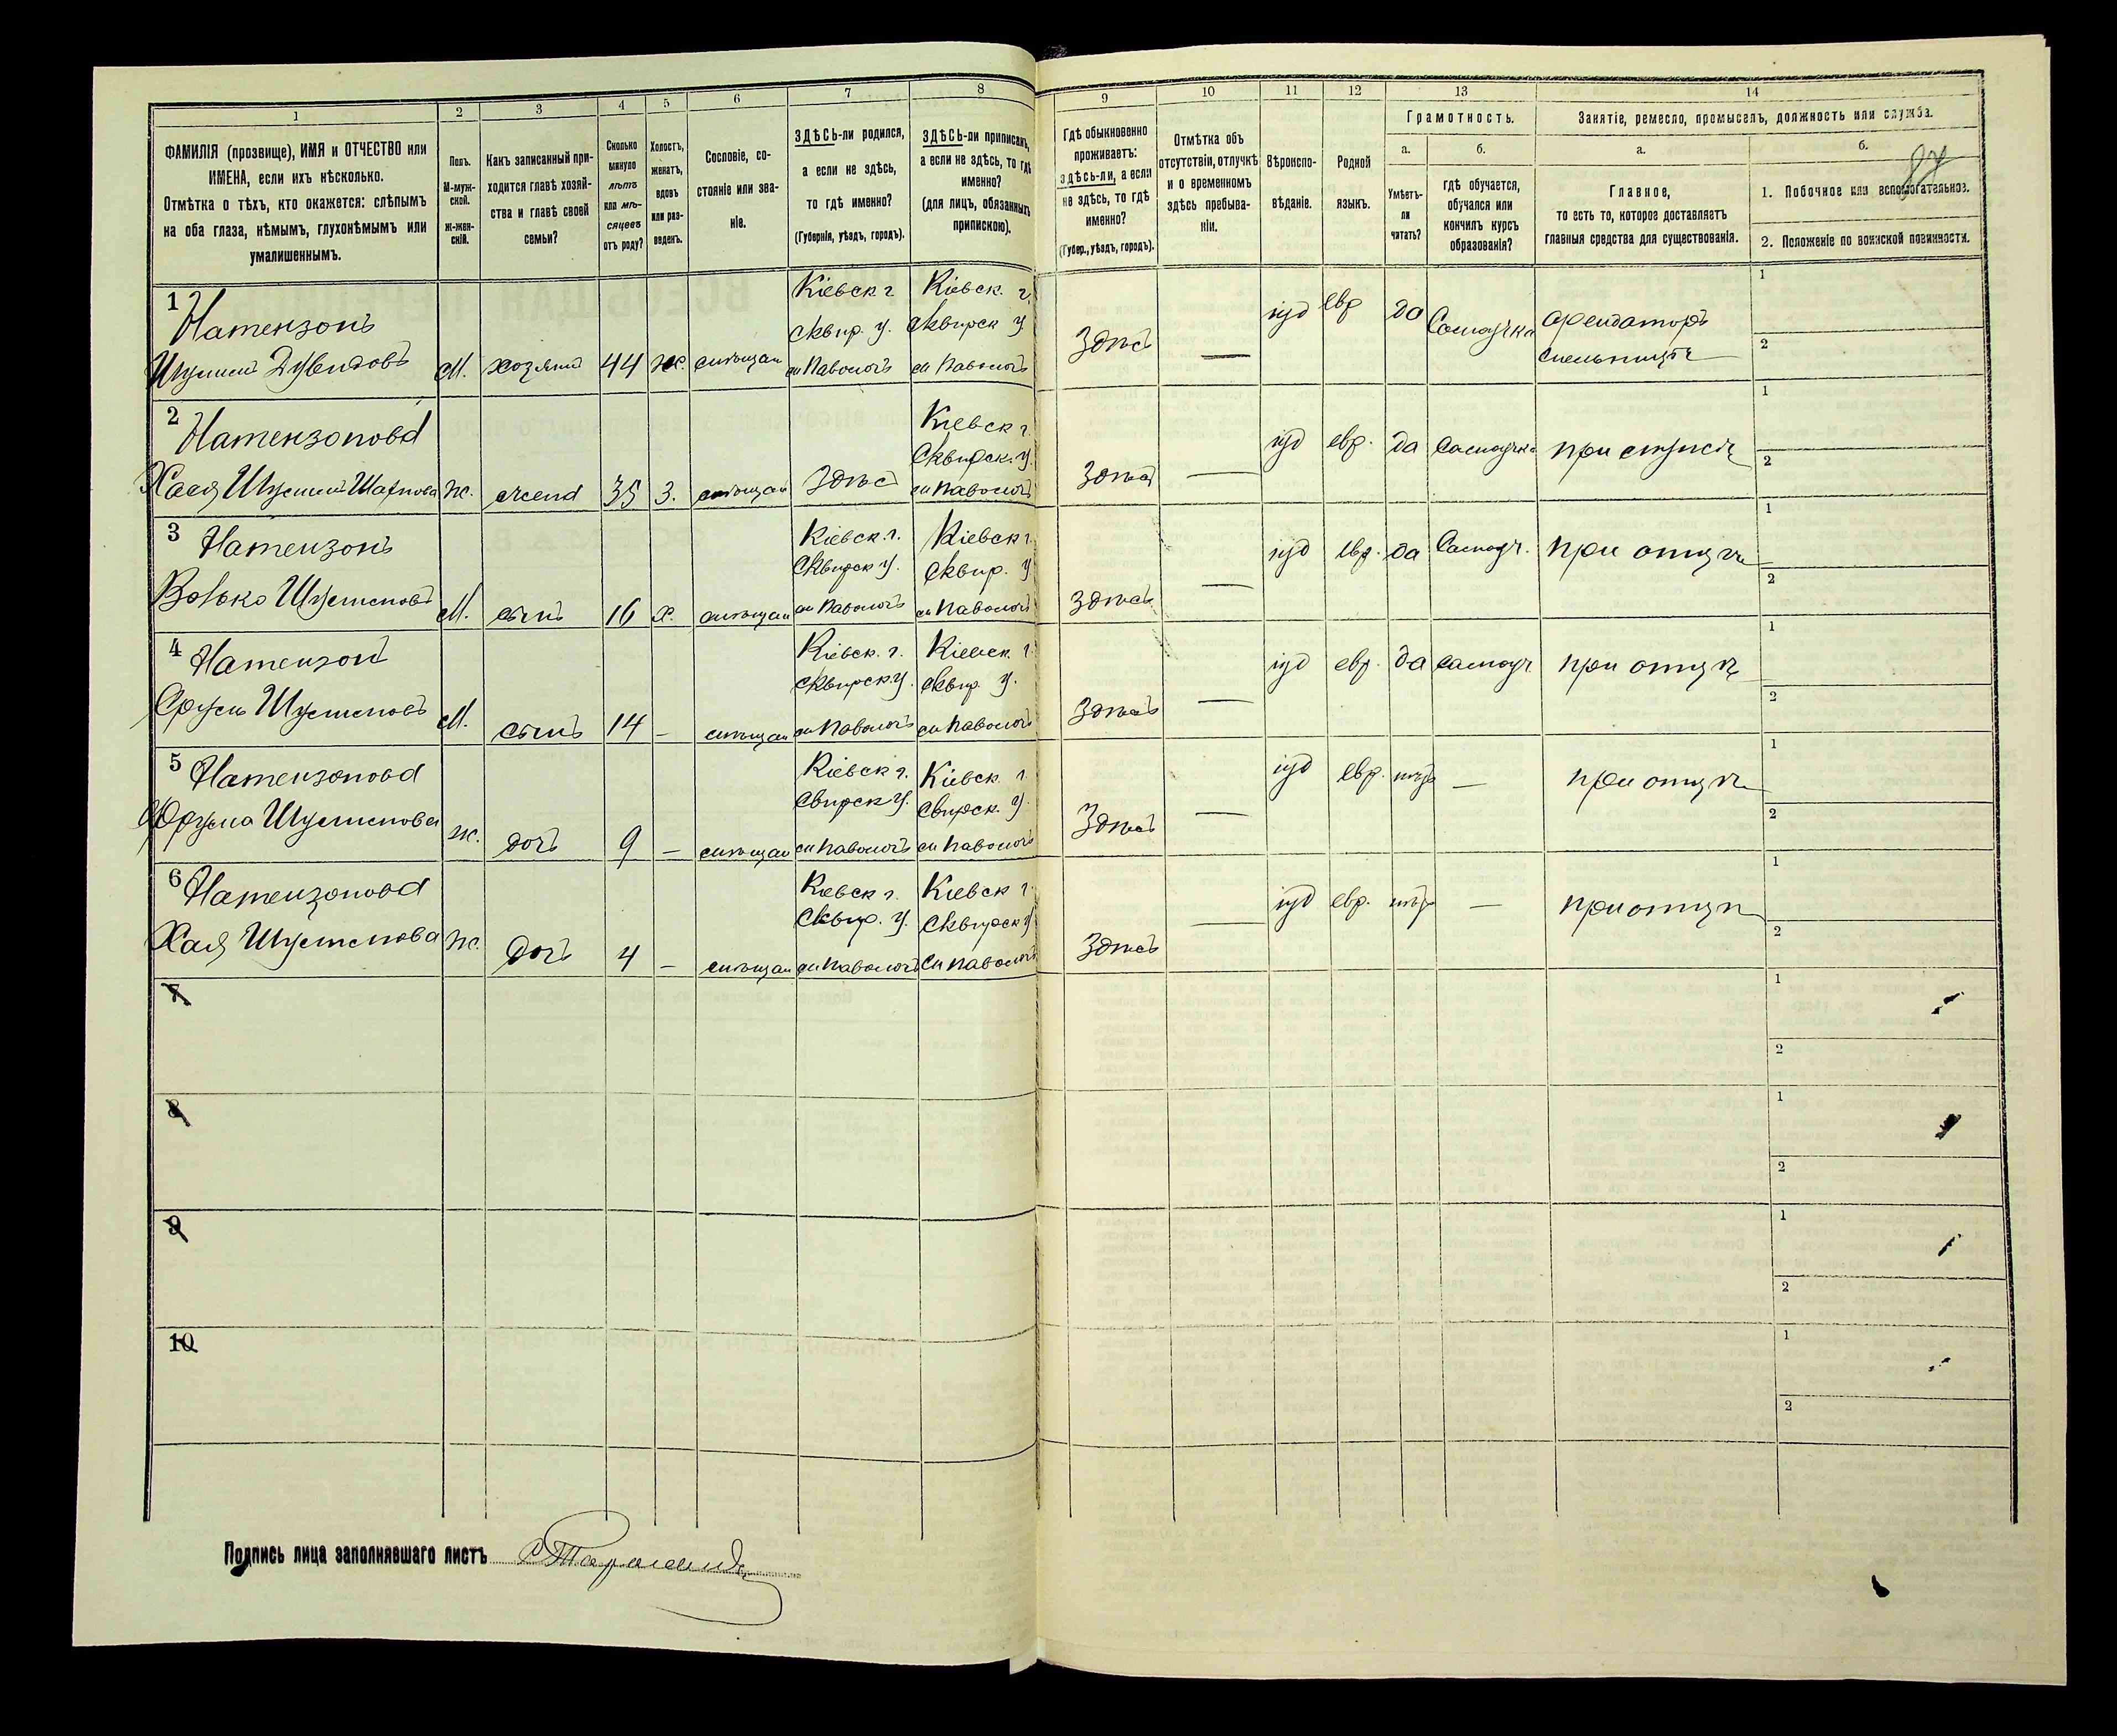 1
2
3
4
5
6
7
8
9
10
11
12
13
14
ФАМИЛІЯ (прозвище), ИМЯ и ОТЧЕСТВО или
ИМЕНА, если ихъ нѣсколько.
Отмѣтка о тѣхъ, кто окажется: слѣпымъ
на оба глаза, нѣмымъ, глухонѣмымъ или
умалишеннымъ.
Полъ.
М-муж-
ской.
Ж-жен-
скій.
Какъ записанный при-
ходится главѣ хозяй-
ства и главѣ своей
семьи?
Сколько
минуло
лѣтъ
или мѣ-
сяцевъ
отъ роду?
Холостъ,
женатъ,
вдовъ
или раз-
веденъ.
Сословіе, со-
стояніе или зва-
ніе.
ЗДѢСЬ-ли родился,
а если не здѣсь,
то гдѣ именно?
(Губернія, уѣздъ, городъ).
ЗДѢСЬ-ли приписанъ,
а если не здѣсь, то гдѣ
именно?
(для лицъ, обязанныхъ
припискою).
Гдѣ обыкновенно
проживаетъ:
здѣсь-ли, а если
не здѣсь, то гдѣ
именно?
(Губер., уѣздъ, городъ).
Отмѣтка объ
отсутствіи, отлучкѣ
и о временномъ
здѣсь пребыва-
ніи.
Вѣроиспо-
вѣданіе.
Родной
языкъ.
Грамотность.
а.
Умѣетъ-
ли
читать?
б.
гдѣ обучается,
обучался или
кончилъ курсъ
образованія?
Занятіе, ремесло, промыселъ, должность или служба.
а.
Главное,
то есть то, которое доставляетъ
главныя средства для существованія.
б.
1. Побочное или вспомогательное.
2. Положеніе по воинской повинности.
1
Натензонъ
Дувидовъ
М. хозяинъ 44 ж.
Кіевск г
Сквир. у.
Кіевск. г.
Сквирск у
здѣсь — іуд евр да
арендаторъ
1
2
2
Натензонова
Хася
ж. жена 35 з.
здѣсь
Кіевск г.
Сквирск. у.
здѣсь — іуд евр. да
при
1
2
3
Натензонъ
Волько
М. сынъ 16 х.
Кіевск. г.
Сквирск у.
Кіевск г.
Сквир. у
здѣсь — іуд евр. да Самоуч. при отцѣ
1
2
4
Натензонъ
Сруль
М. сынъ 14 —
Кіевск. г.
Сквирск у.
Кіевск. г.
Сквир. у.
здѣсь — іуд евр. да самоуч при отцѣ
1
2
5
Натензонова
ж. дочь 9 —
Кіевск г.
Свирск у.
Кіевск г
Свирск. у.
здѣсь — іуд евр. нѣтъ — при отцѣ
1
2
6
Натензонова
Хая
ж. дочь 4 —
Кіевск г.
Сквир. у.
Кіевск г.
Сквирск у
здѣсь — іуд евр. нѣтъ — при отцѣ
1
2
7
1
2
8
1
2
9
1
2
10
1
2
Подпись лица заполнявшаго листъ